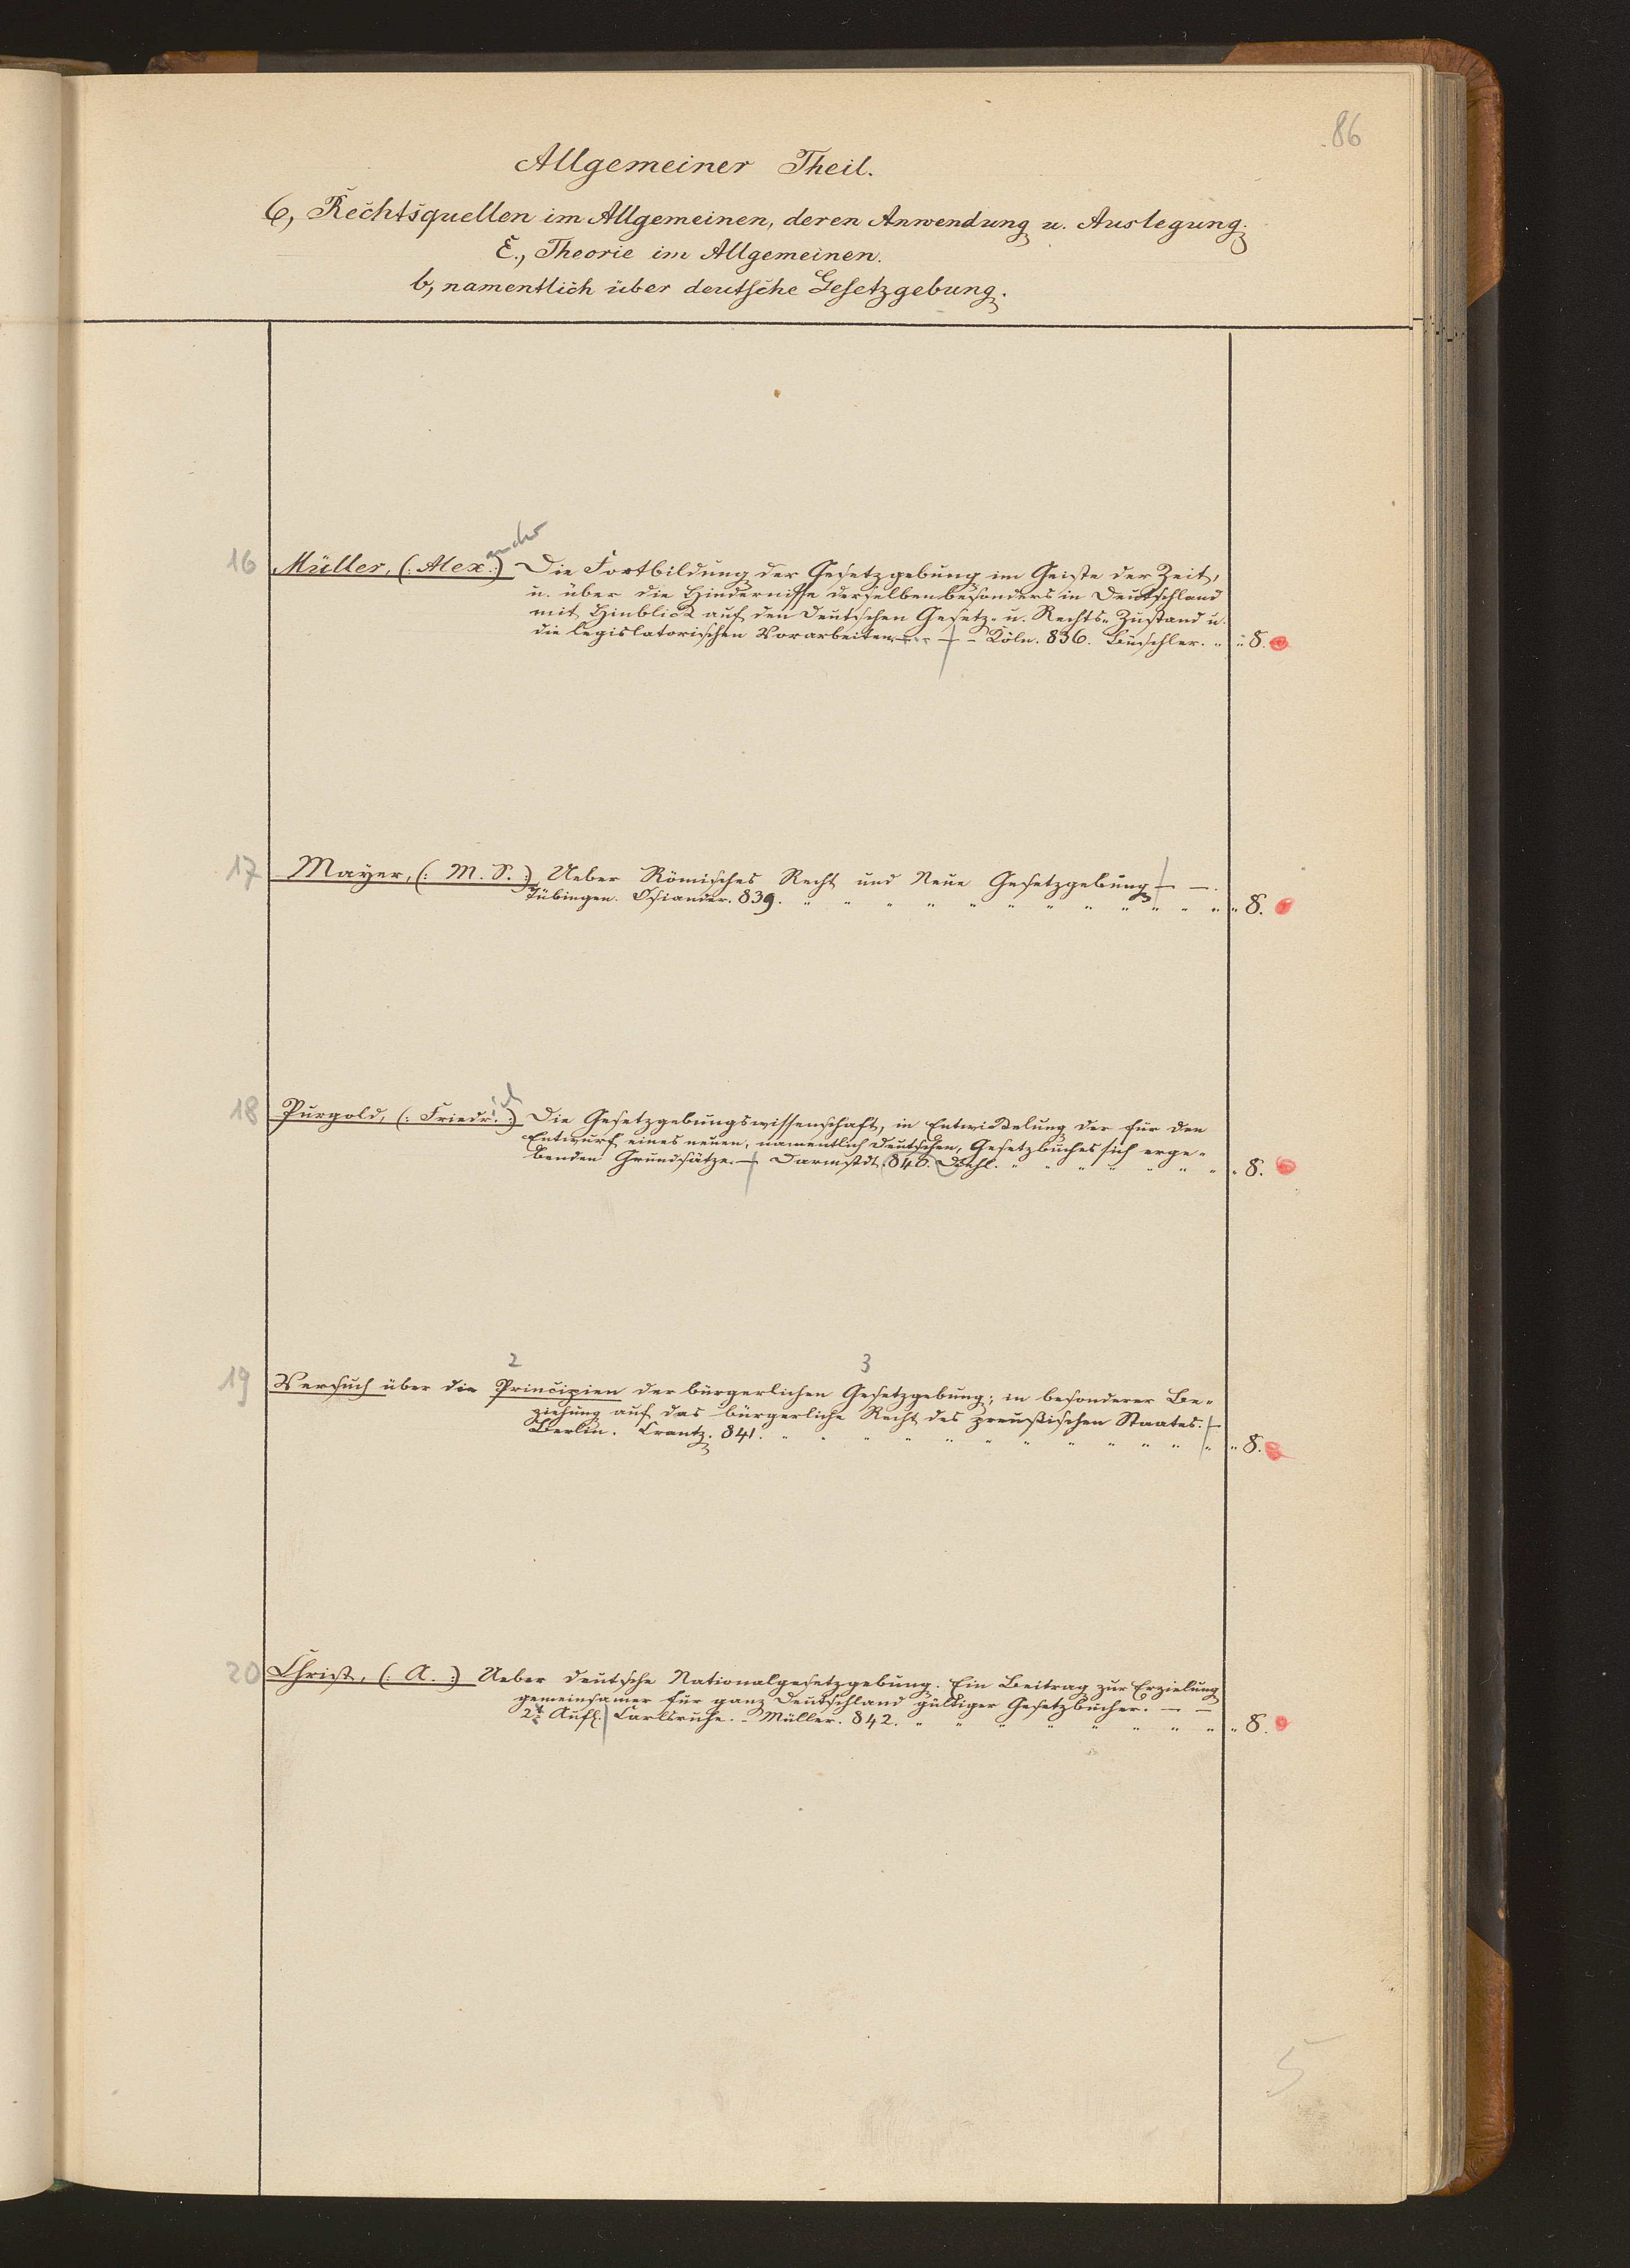 86
Allgemeiner Theil.
6, Rechtsquellen im Allgemeinen, deren Anwendung u. Auslegung.
E., Theorie im Allgemeinen.
b, namentlich über deutsche Gesetzgebung.
16 Müller, (: Alex :) ander Die Fortbildung der Gesetzgebung im Geiste der Zeit,
u. über die Hindernisse derselben besonders in Deutschland
mit Hinblick auf den deutschen Gesetz- u. Rechts-Zustand u.
die legislatorischen Vorarbeiten. — Köln. 836. Büschler. " " 8.
17 Mayer, (: M. S. :) Ueber Römisches Recht und Neue Gesetzgebung — —.
Tübingen. Osiander. 839. " " " " " " " " " " " " 8.
18 Purgold, (: Friedr. :) ich Die Gesetzgebungswissenschaft, in Entwickelung der für den
Entwurf eines neuen, namentlich deutschen, Gesetzbuches sich erge-
benden Grundsätze. — Darmstdt. 840. Diehl. " " " " " " " " 8.
2 3
19 Versuch über die Principien der bürgerlichen Gesetzgebung; in besonderer Be-
ziehung auf das bürgerliche Recht des preußischen Staates. —
Berlin. Crantz. 841. " " " " " " " " " " " " " 8.
20 Christ, (: A. :) Ueber deutsche Nationalgesetzgebung. Ein Beitrag zur Erzielung
gemeinsamer für ganz Deutschland gültiger Gesetzbücher. — —
2t Aufl. Carlsruhe. - Müller. 842. " " " " " " " " " 8.
5